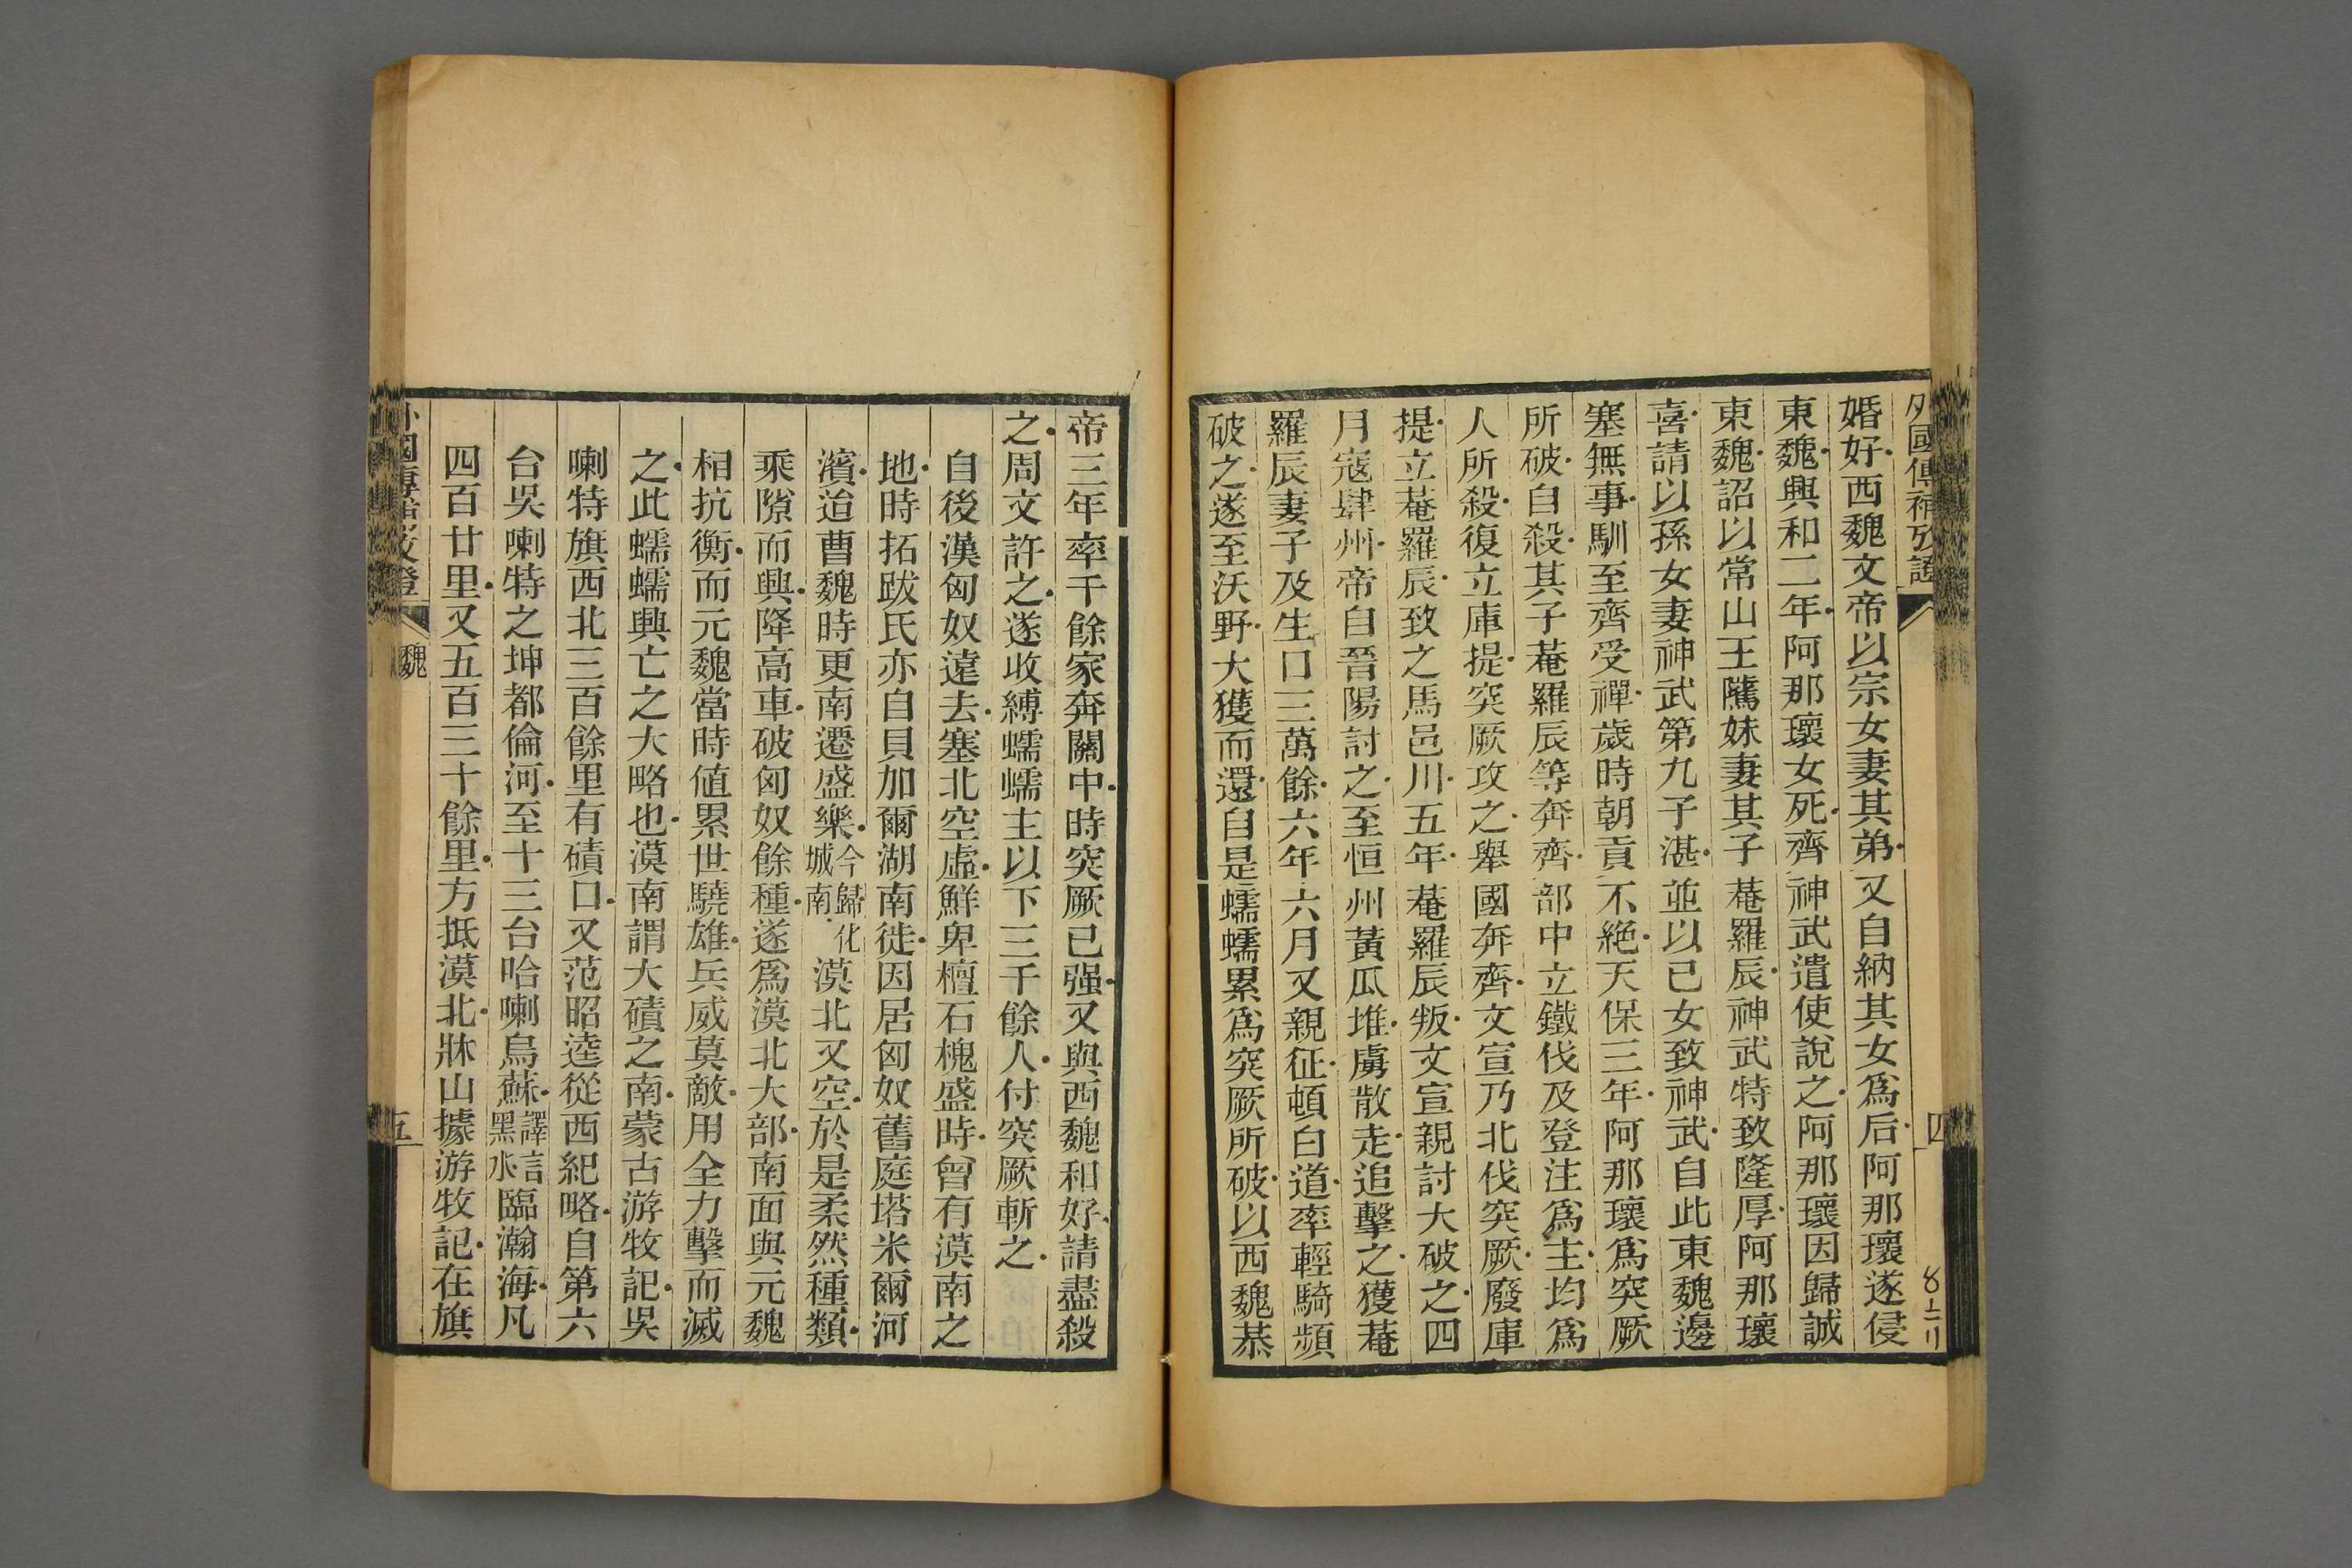 婚好西魏文帝以宗女妻其弟又自納其女爲后阿那瓌遂侵
東魏興和二年阿那瓌女死齊神武遣使說之阿那瓌因歸誠
東魏詔以常山王騭妹妻其子菴羅辰神武特致隆厚阿那瓌
喜請以孫女妻神武第九子湛並以已女致神武自此東魏邊
塞無事馴至齊受禪歲時朝貢不絶天保三年阿那瓌爲突厥
所破自殺其子菴羅辰等奔齊部中立鐵伐及登注爲主均爲
人所殺復立庫提突厥攻之舉國奔齊文宣乃北伐突厥廢庫
提立菴羅辰致之馬邑川五年菴羅辰叛文宣親討大破之四
月寇肆州帝自晉陽討之至恒州黃瓜堆虜散走追擊之獲菴
羅辰妻子及生口三萬餘六年六月又親征頓白道率輕騎頻
破之遂至沃野大獲而還自是蠕蠕累爲突厥所破以西魏恭
四
8二刂
帝三年率千餘家奔關中時突厥已强又與西魏和好請盡殺
之周文許之遂收縛蠕蠕主以下三千餘人付突厥斬之
自後漢匈奴遠去塞北空虛鮮卑檀石槐盛時曾有漠南之
地時拓跋氏亦自貝加爾湖南徙因居匈奴舊庭塔米爾河
濱迨曹魏時更南遷盛樂今歸化城南漠北又空於是柔然種類
乘隙而興降高車破匈奴餘種遂爲漠北大部南面與元魏
相抗衡而元魏當時値累世驍雄兵威莫敵用全力擊而滅
之此蠕蠕興亡之大略也漠南謂大磧之南蒙古游牧記吳
喇特旗西北三百餘里有磧口又范昭逵從西紀略自第六
台吳喇特之坤都倫河至十三台哈喇烏蘇譯言黑水臨瀚海凡
四百廿里又五百三十餘里方抵漠北牀山據游牧記在旗
魏
五